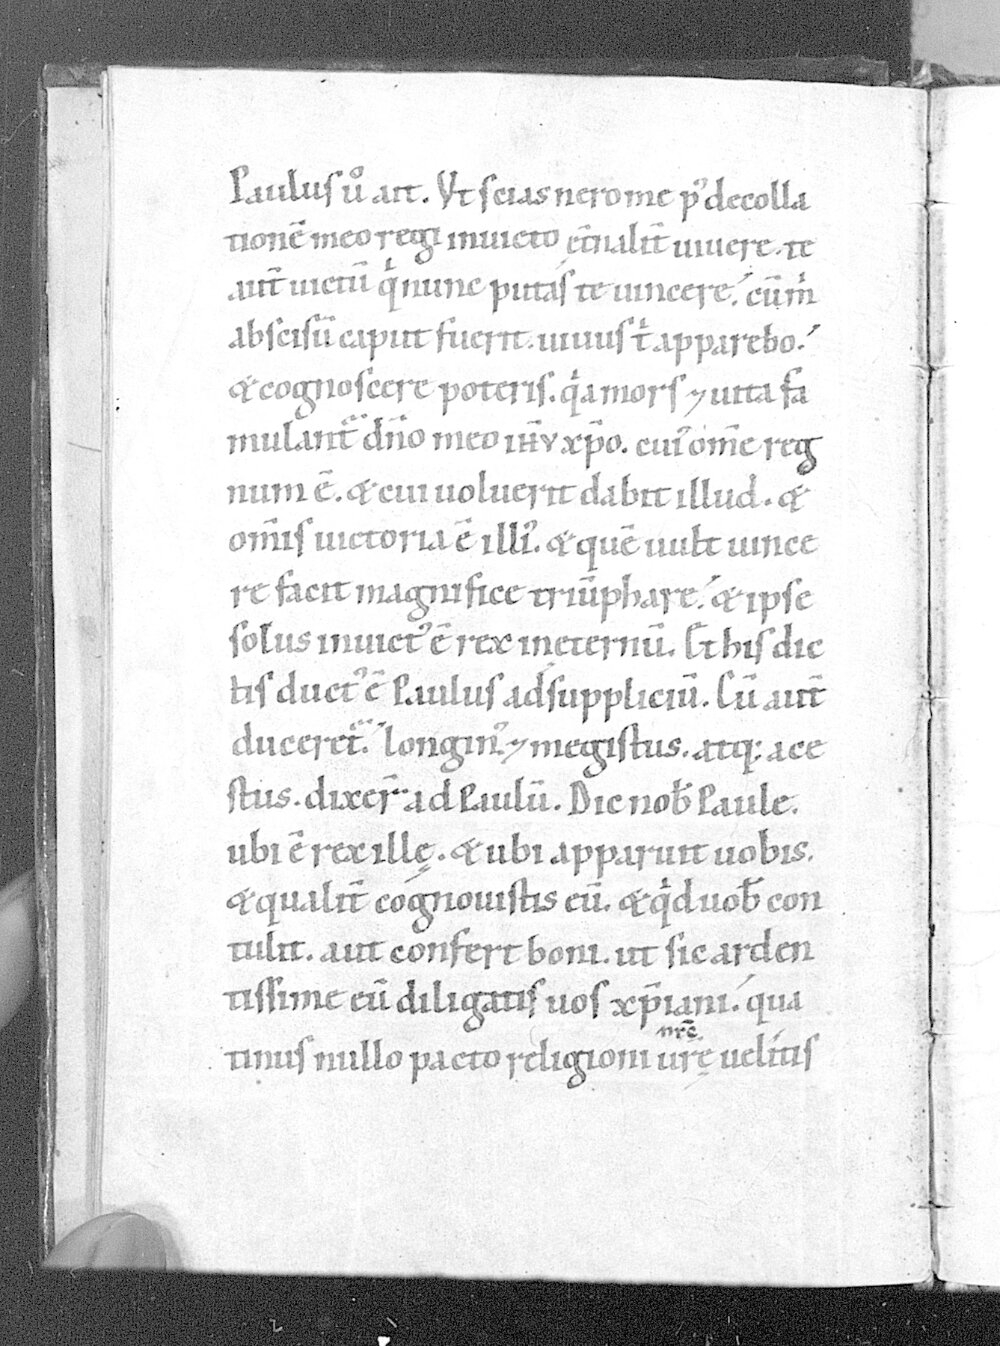 Paulus ů ait. Vt scias nero me p᷒ decolla
tionē meo regi inuicto et̄nalit̄ uiuere. te
aut̄ uictū qͥ nunc putas te uincere. cū m̊
abscisū caput fuerit. uiuus tͥ apparebo.
& cognoscere poteris. qͥa mors ⁊ uita fa
mulant᷑ dn̄o meo iħv xp̄o. cui᷒ om̄e reg
num ē. & cui uoluerit dabit illud. &
om̄is uictoria ē illi᷒. & quē uult uince
re facit magnifice triūphare. & ipse
solus inuict᷒ ē rex in ęternū. Et his dic
tis duct᷒ ē Paulus ad suppliciū. Cū aut̄
duceret᷑. longin᷒ ⁊ megistus. atq: ace
stus. dixer̄ ad Paulū. Dic nob̄ Paule.
ubi ē rex ille. & ubi apparuit uobis.
& qualit̄ cognouistis eū. & qͥd uob̄ con
tulit. aut confert boni. ut sic arden
tissime eū diligatis uos xp̄iani. qua
nr̄ę
tinus nullo pacto religioni ur̄ę uelitis